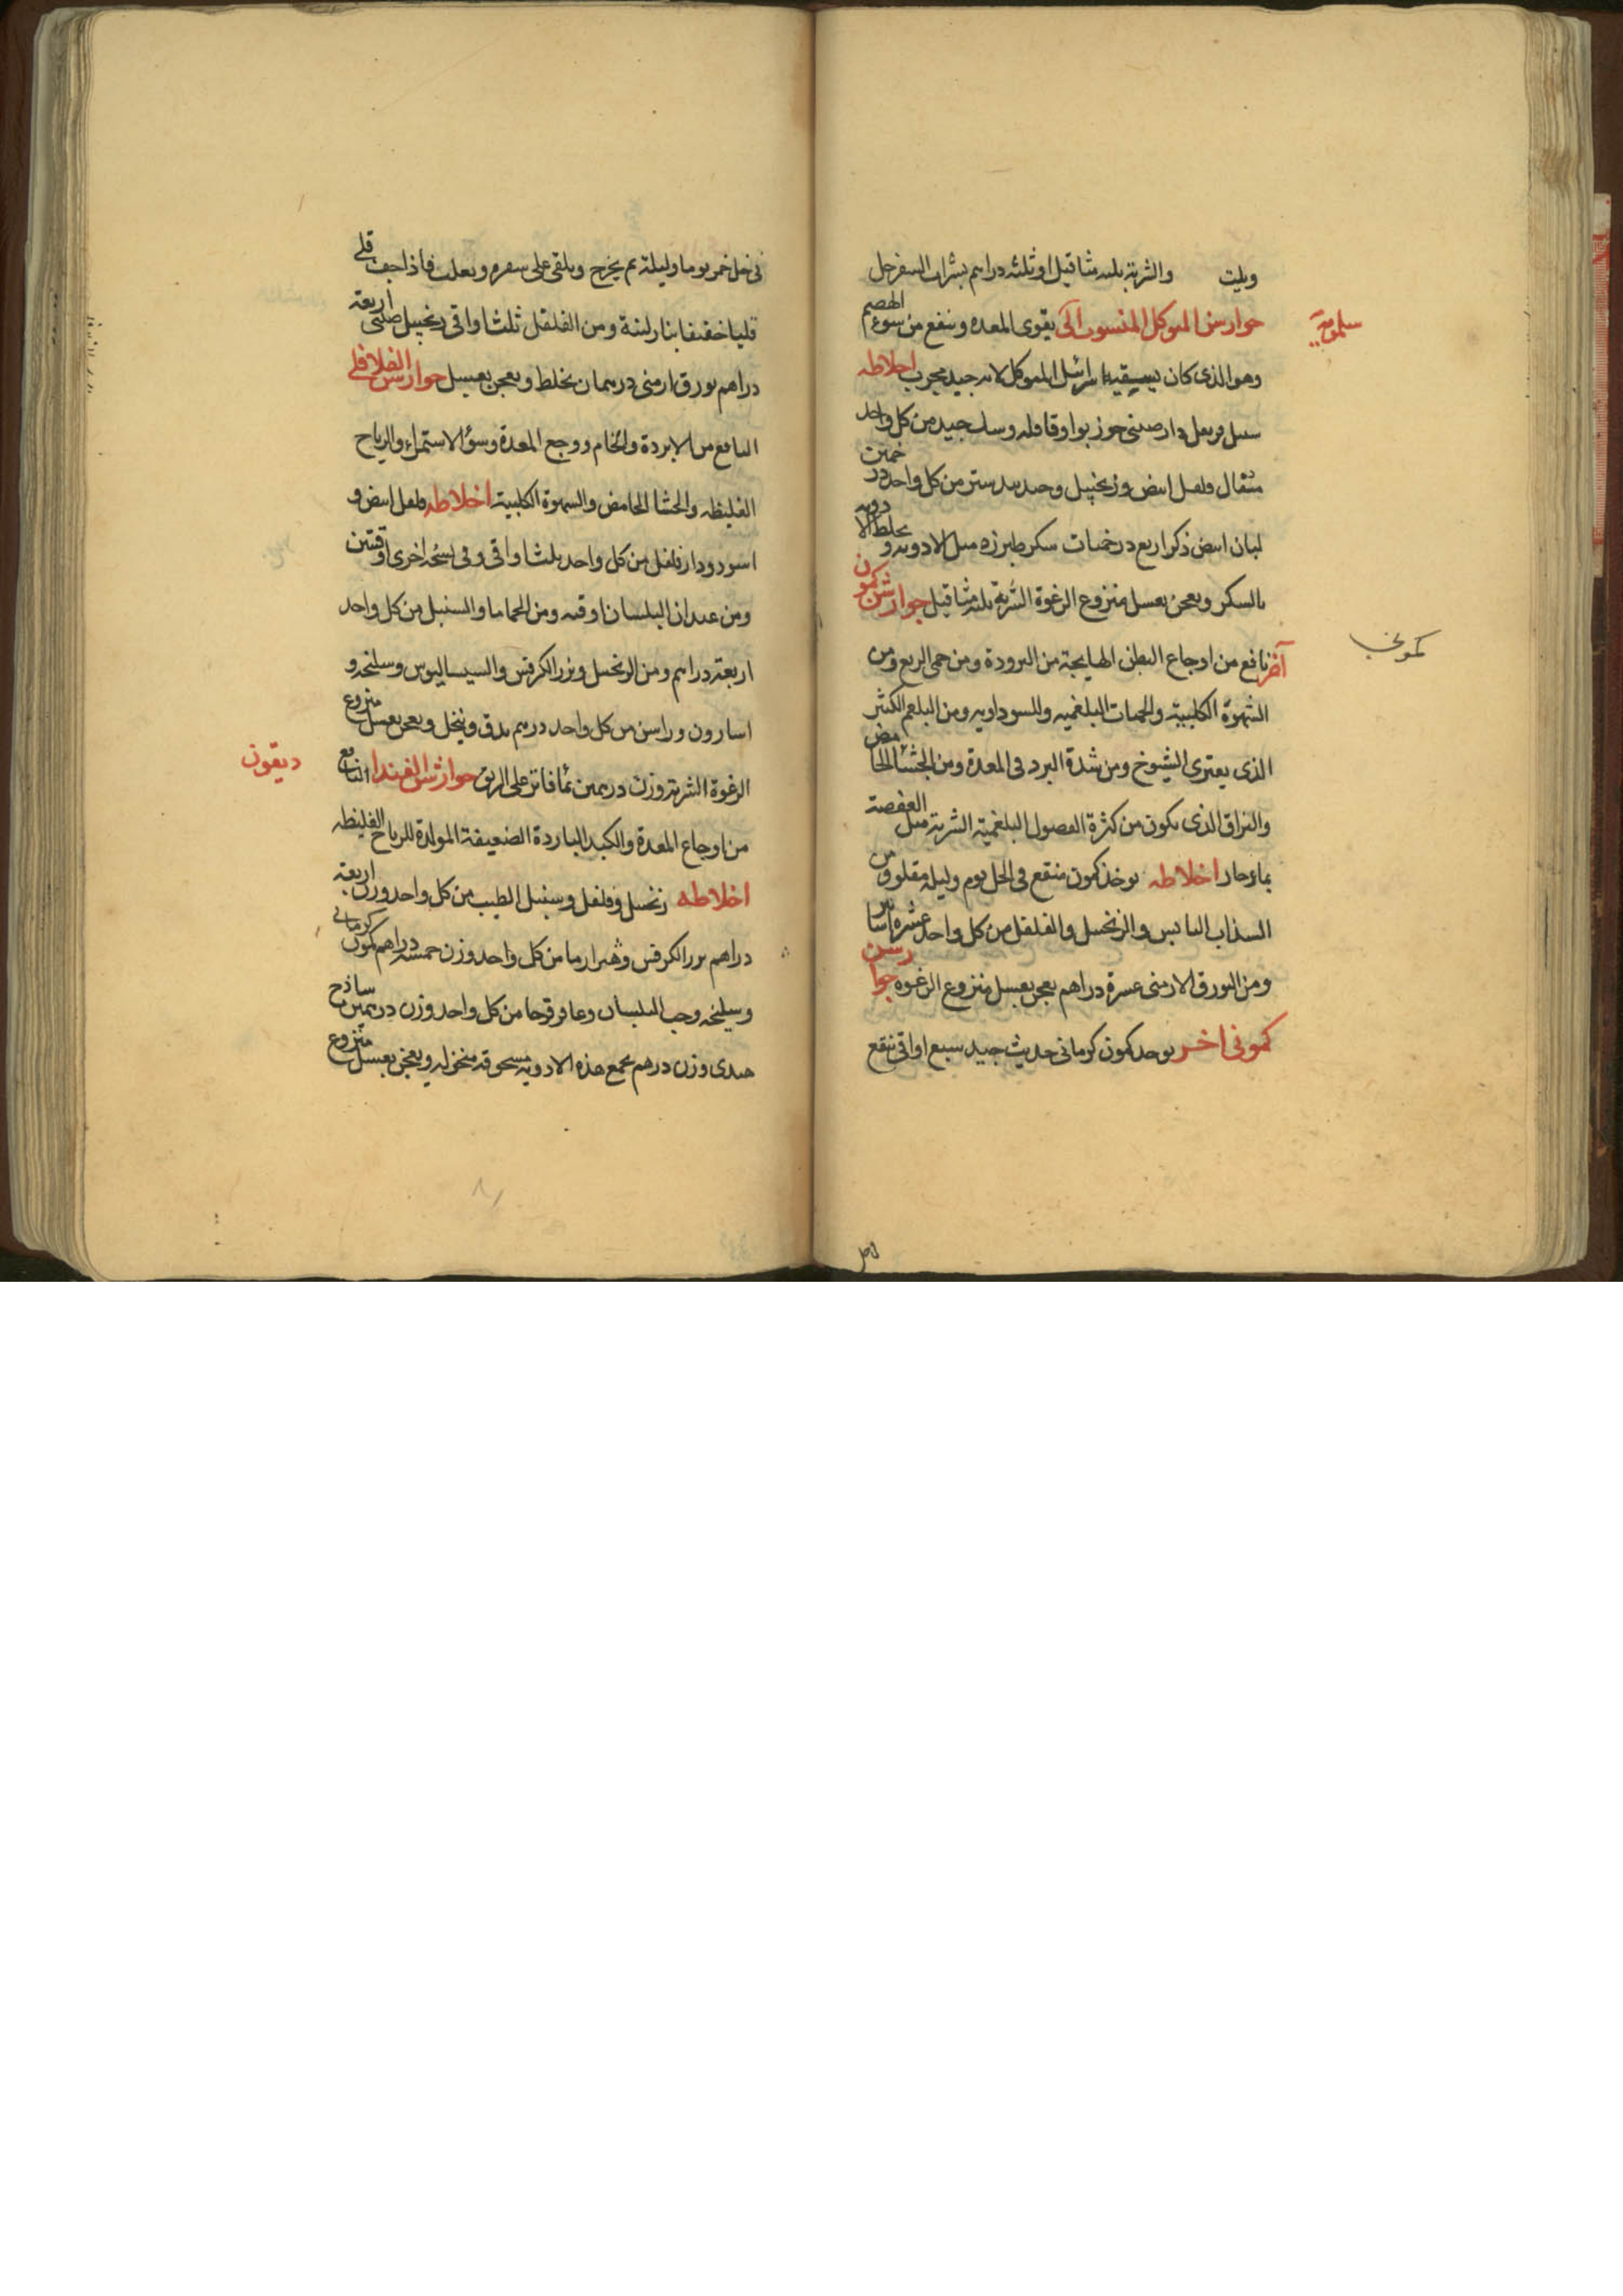 ويلت والشربة ثلثه مثاقيل او ثلثه دراهم بشراب السفرجل
جوارشن المتوكل المنسوب الى يقوى المعده وينفع من سوء الهضم
سلمويه
وهو الذى كان اسرائيل المتوكل لانه جيد مجرب اخلاطه
سنبل قرنفل دارصينى جوز بوا وقاقله وسك جيد من كل واحد
مثقال فلفل ابيض وزنجبيل وجندبيدستر من كل واحد درخمين
لبان ابيض ذكر اربع درخميات سكر طبرزد مثل الادويه و يخلط الادويه
بالسكر ويعجن بعسل منزوع الرغوة الشربة ثلثه مثاقيل جوارشن كمون
آخر نافع من اوجاع البطن الهايجة من البرودة ومن حمى الربع ومن
كمونى
الشهوة الكلبية والحميات البلغميه والسوداويه ومن البلغم الكثير
الذى يعترى الشيوخ ومن شدة البرد فى المعدة ومن الجشا الحامض
والفراق الذى يكون من كثرة الفصول البلغمية الشربة مثل العفصة
بماء حار اخلاطه يوخذ كمون منقع فى الخل يوم وليله مقلو ومن
السذاب اليابس والزنجبيل والفلفل من كل واحد عشره اساتير
ومن البورق الارمنى عشرة دراهم يعجن بعسل منزوع الرغوه جوارشن
كمونى اخر يوخذ كمون كرمانى حديث جيد سبع اواقى ينقع
فى خل خمر يوما وليلة ثم يخرج ويلقى على سفره ويقلب فاذا جف قلى
قليا خفيفا بنار لينة ومن الفلفل ثلث اواقى زنجبيل صينى اربعة
دراهم بورق ارمنى درهمان يخلط ويعجن بعسل جوارشن الفلافلى
النافع من الابردة والخام ووجع المعدة وسوء الاستمراء والرياح
الغليظه والجشا الحامض والشهوة الكلبية اخلاطه فلفل ابيض و
اسود ودارفلفل من كل واحد ثلث اواقى وفى نسخه اخرى اوقيتين
ومن عيدان البلسان اوقيه ومن الحماما والسنبل من كل واحد
اربعة دراهم ومن الزنجبيل وبزر الكرفس والسيساليوس وسليخه و
اسارون وراسن من كل واحد درهم يدق وينخل ويعجن بعسل منزوع
الرغوة الشربة وزن درهمين بماء فاتر على الريق جوارشن الفنداد النافع
ديقون
من اوجاع المعدة والكبد الباردة الضعيفة المولدة للرياح الغليظه
اخلاطه زنجبيل وفلفل وسنبل الطيب من كل واحد وزن اربعة
دراهم بزر الكرفس من كل واحد وزن خمسة دراهم كمون كرمانى
وسليخه وحب البلسان وعاقرقرحا من كل واحد وزن درهمين ساذج
هندى وزن درهم يجمع هذه الادويه مسحوقه منخوله ويعجن بعسل منزوع